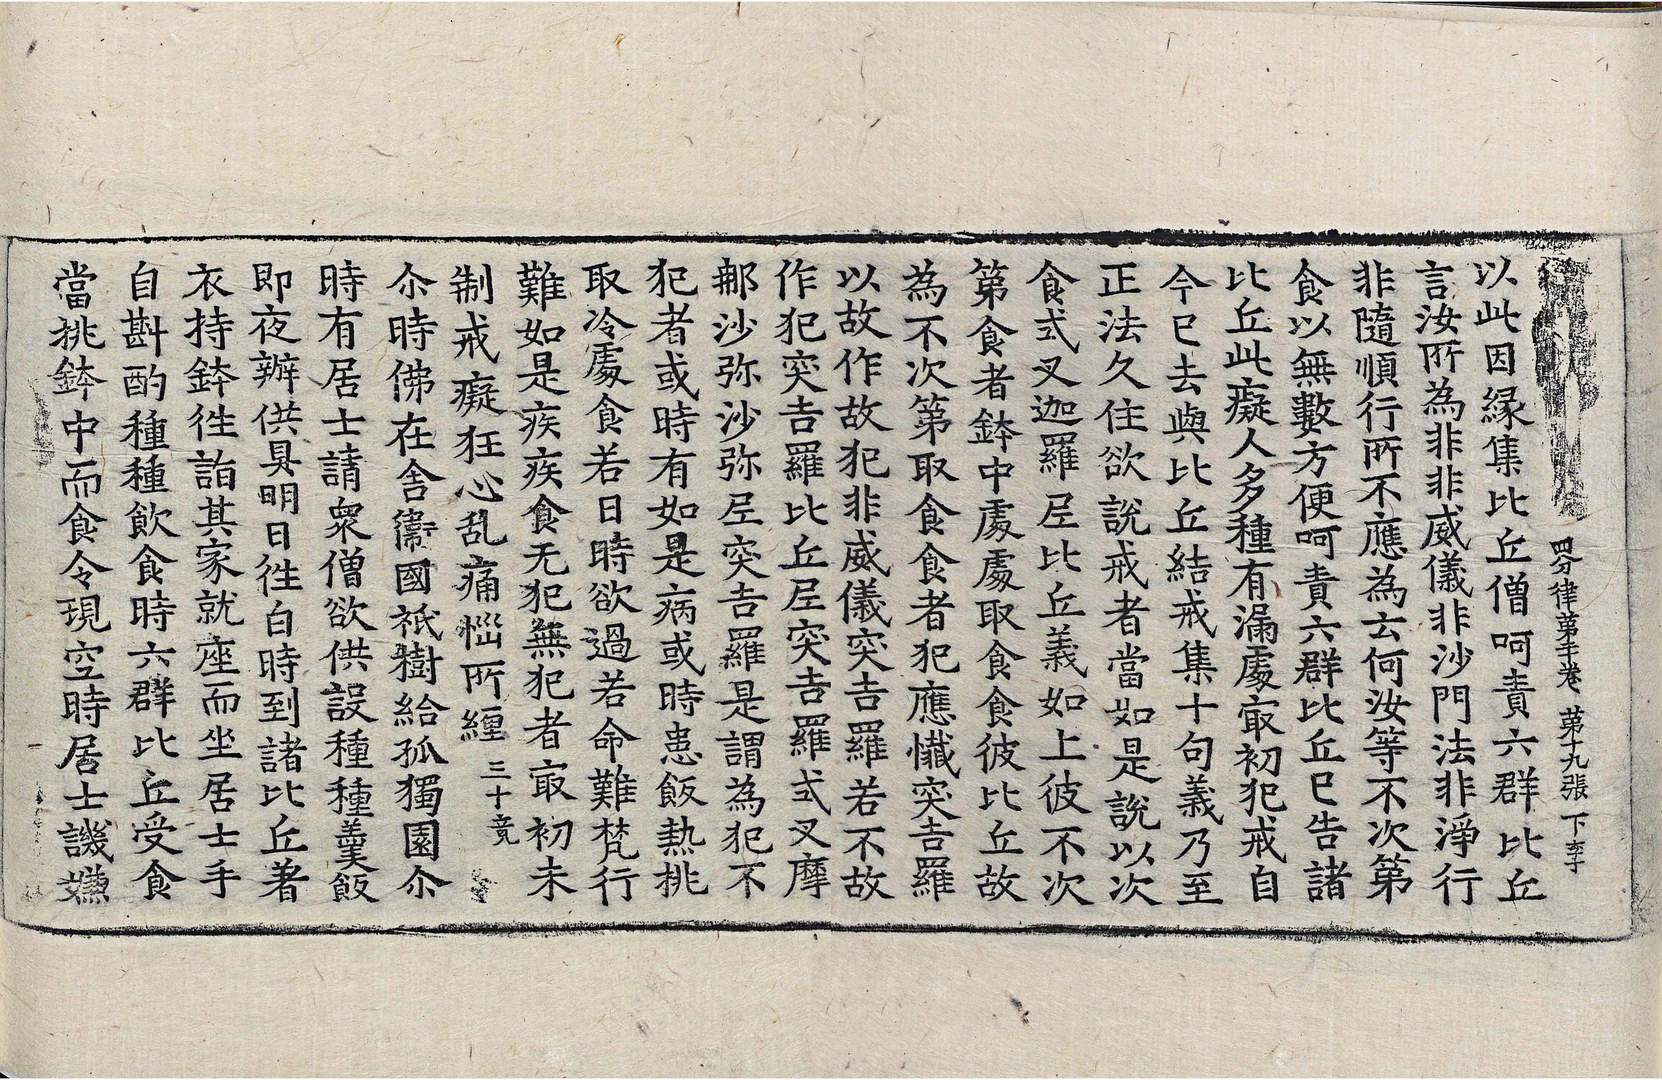 四分律第二十卷 第十九張 下李
以此因縁集比丘僧呵責六群比丘
言汝所為非非威儀非沙門法非淨行
非隨順行所不應為云何汝等不次第
食以無數方便呵責六群比丘已告諸
比丘此癡人多種有漏處㝡初犯戒自
今已去與比丘結戒集十句義乃至
正法久住欲說戒者當如是說以次
食式叉迦羅尼比丘義如上彼不次
第食者鉢中處處取食食彼比丘故
為不次第取食食者犯應懺突吉羅
以故作故犯非威儀突吉羅若不故
作犯突吉羅比丘尼突吉羅式叉摩
那沙弥沙弥尼突吉羅是謂為犯不
犯者或時有如是病或時患飯熱挑
取冷處食若日時欲過若命難梵行
難如是疾疾食无犯無犯者㝡初未
制戒癡狂心乱痛惱所纏 三十竟
尒時佛在舍衛國祇樹給孤獨園尒
時有居士請衆僧欲供設種種羹飯
即夜辦供具明日徃白時到諸比丘著
衣持鉢徃詣其家就座而坐居士手
自斟酌種種飲食時六群比丘受食
當挑鉢中而食令現空時居士譏嫌